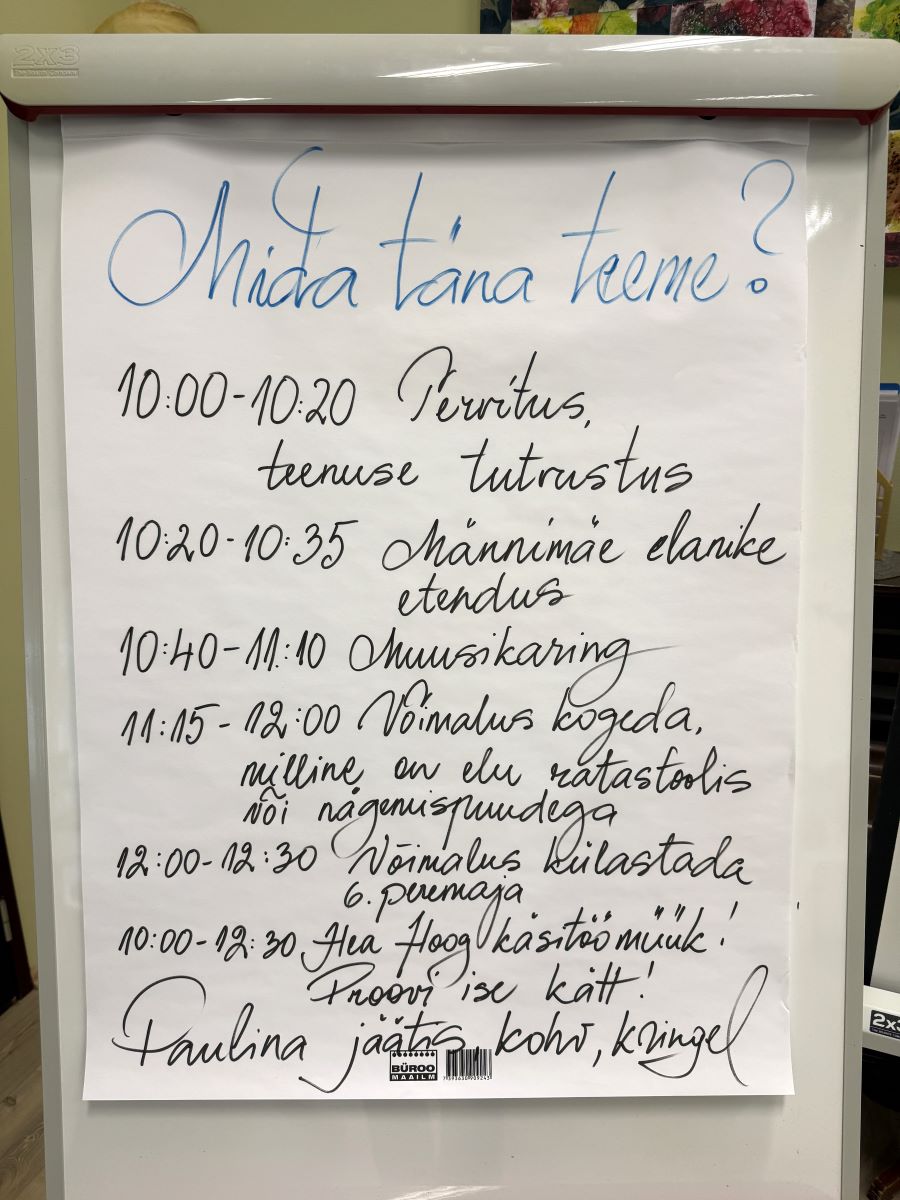 2X3
Mida täna teeme?
10:00-10:20 Tervitus,
teenuse tutvustus
10:20-10:35 Männimäe elanike
etendus
10:40-11:10 Muusikaring
11:15-12:00 Võimalus kogeda,
milline on elu ratastoolis
või nägemispuudega
12:00-12:30 Võimalus külastada
6. peremaja
10:00-12:30 Hea Hoog käsitöömüük!
Proovi ise kätt!
Paulina jäätis, kohv, kringel
BÜROO
MAAILM
2x3